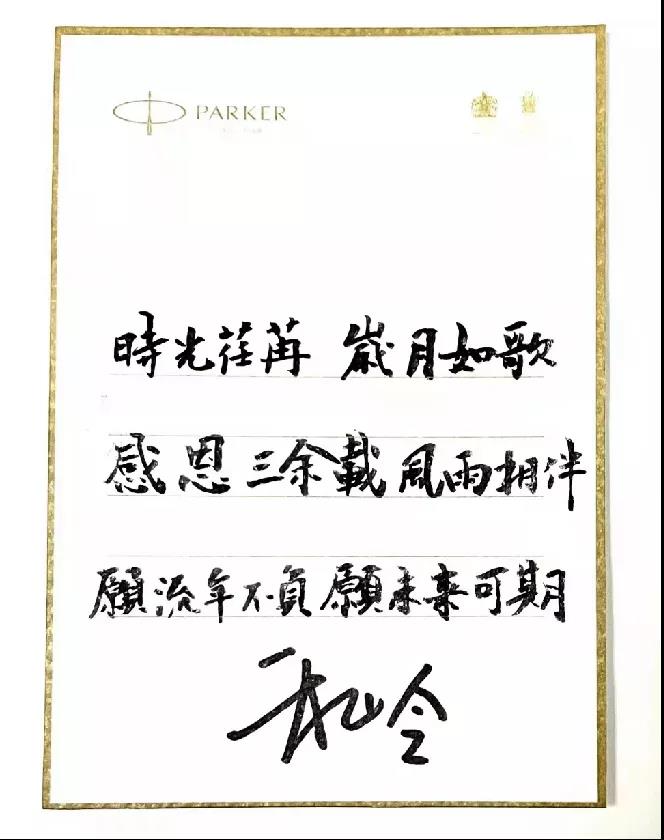 PARKER
時光荏苒 歲月如歌
感恩三余載風雨相伴
願流年不負願未来可期